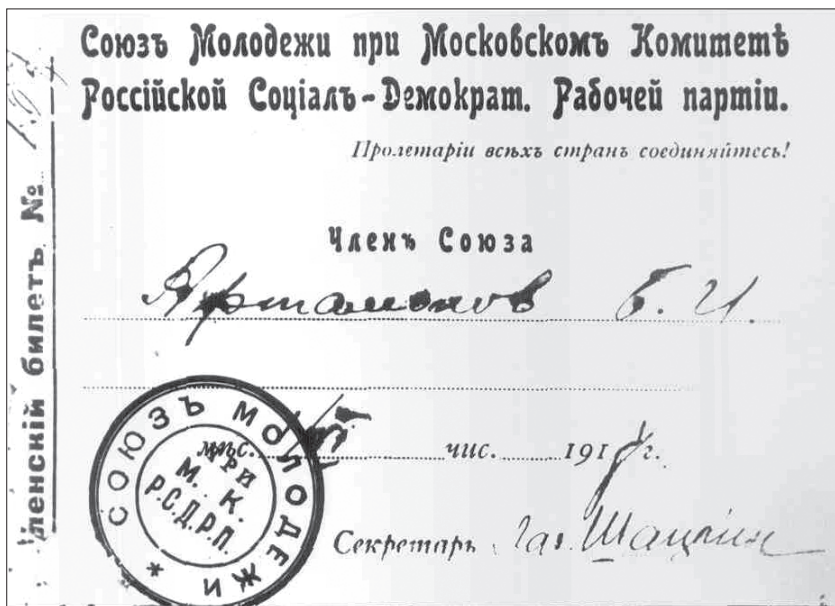 Союзъ Молодежи при Московскомъ Комитетѣ
Россійской Соціалъ-Демократ. Рабочей партіи.
Пролетаріи всѣхъ странъ соединяйтесь!
Членъ Союза
Артамонов Б. И.
мѣс. чис. 191 г.
Секретарь Лаз. Шацкин
ленскій билетъ №
СОЮЗЪ МОЛОДЕЖИ *
ПРИ
М. К.
Р.С.Д.Р.П.